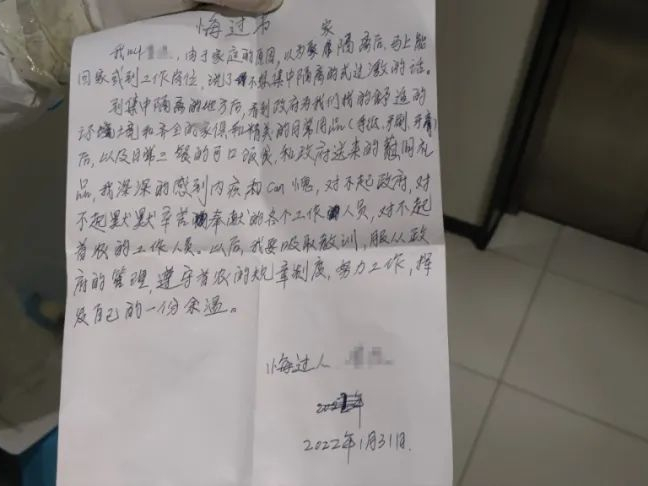 悔过书
家
我叫，由于家庭的原因，以为家庭隔离后，马上能
回家或到工作岗位，说了不想集中隔离的式过激的话。
到集中隔离的地方后，看到政府为我们找的舒适的
环境和齐全的家俱和精美的日常用品（手纸、牙刷、牙膏）
后，以及日常三餐的可口饭食，和政府送来的慰问礼
品，我深深的感到内疚和Can愧，对不起政府，对
不起默默辛苦奉献的各个工作人员，对不起
首农的工作人员。以后，我要吸取教训，服从政
府的管理，遵守首农的规章制度，努力工作，挥
发自己的一份余温。
悔过人
2022年1月31日.